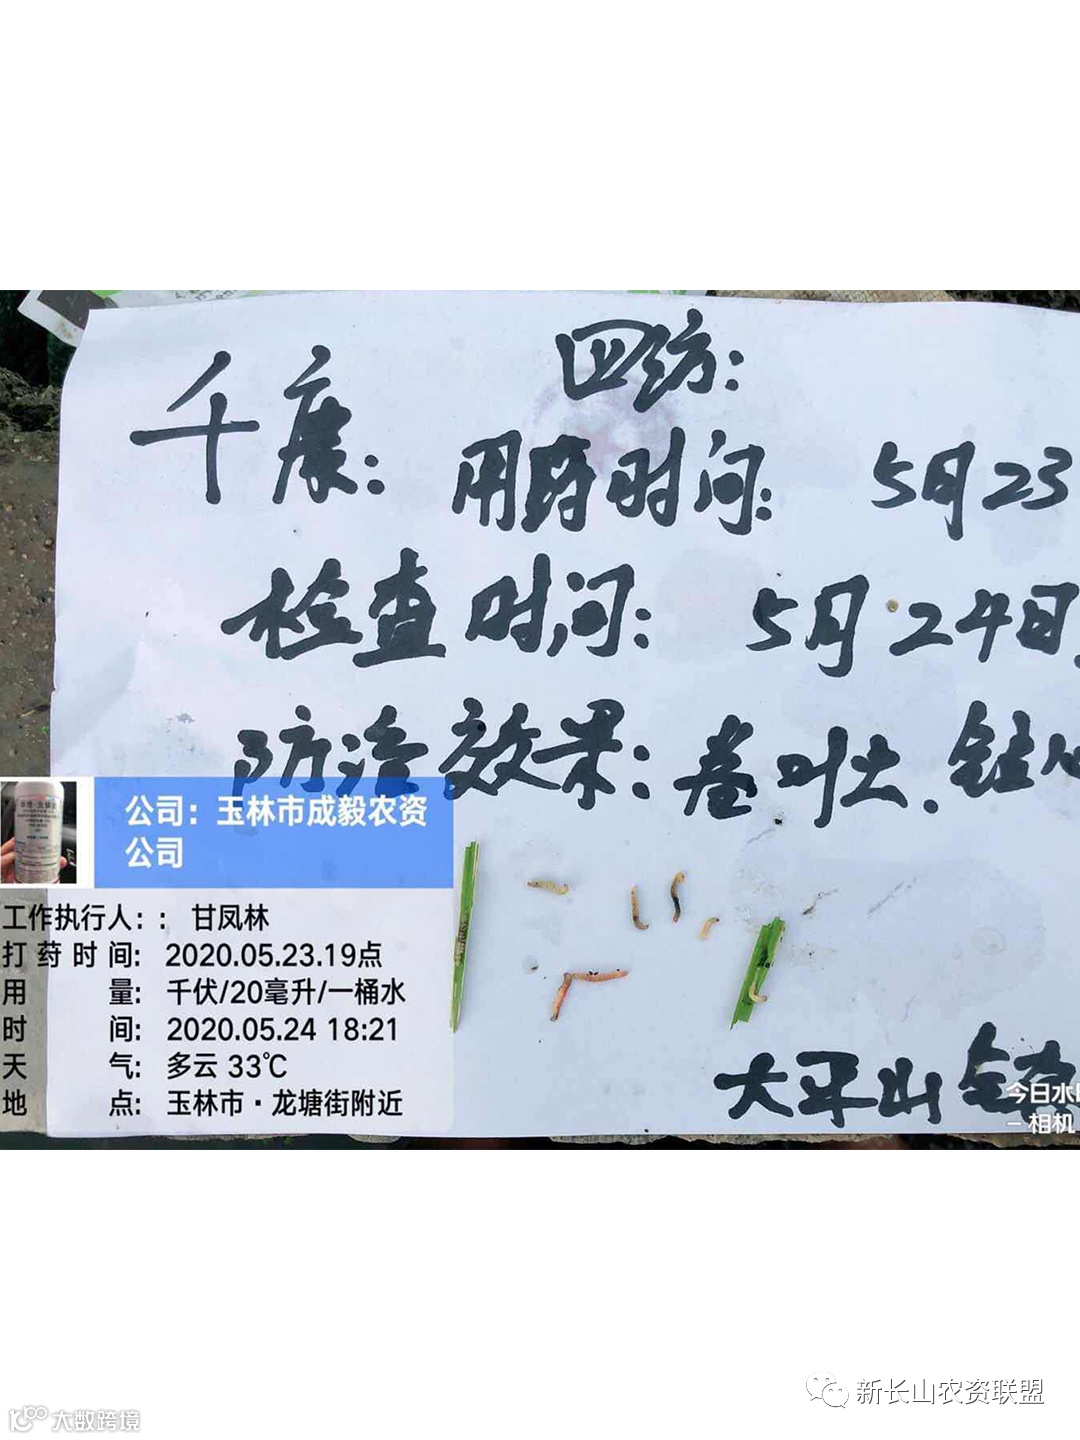 四访:
千康:
用药时间: 5月23
检查时间: 5月24日
防治效果: 卷叶虫. 钻心
公司：玉林市成毅农资
公司
工作执行人：： 甘凤林
打药时间: 2020.05.23.19点
用量: 千伏/20毫升/一桶水
时间: 2020.05.24 18:21
天气: 多云 33℃
地点: 玉林市·龙塘街附近
大平山
今日水印
相机
新长山农资联盟
大数跨境